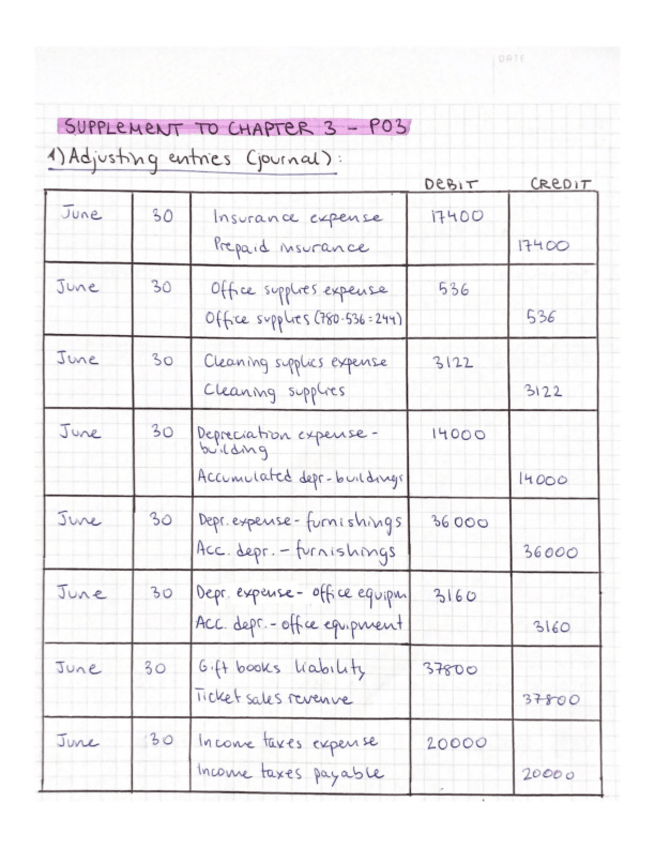 DATE
SUPPLEMENT TO CHAPTER 3 - P03
1) Adjusting entries (journal):
DEBIT CREDIT
June 30 Insurance expense 17400
Prepaid insurance 17400
June 30 Office supplies expense 536
Office supplies (780-536=244) 536
June 30 Cleaning supplies expense 3122
Cleaning supplies 3122
June 30 Depreciation expense - 14000
building
Accumulated depr-buildings 14000
June 30 Depr. expense - furnishings 36000
Acc. depr. - furnishings 36000
June 30 Depr. expense - office equipm 3160
Acc. depr. - office equipment 3160
June 30 Gift books liability 37800
Ticket sales revenue 37800
June 30 Income taxes expense 20000
Income taxes payable 20000